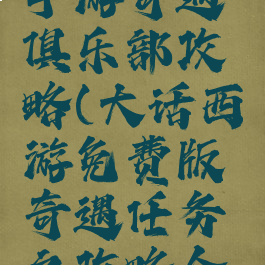 手游奇遇
俱乐部攻
略(大话西
游免费版
奇遇任务